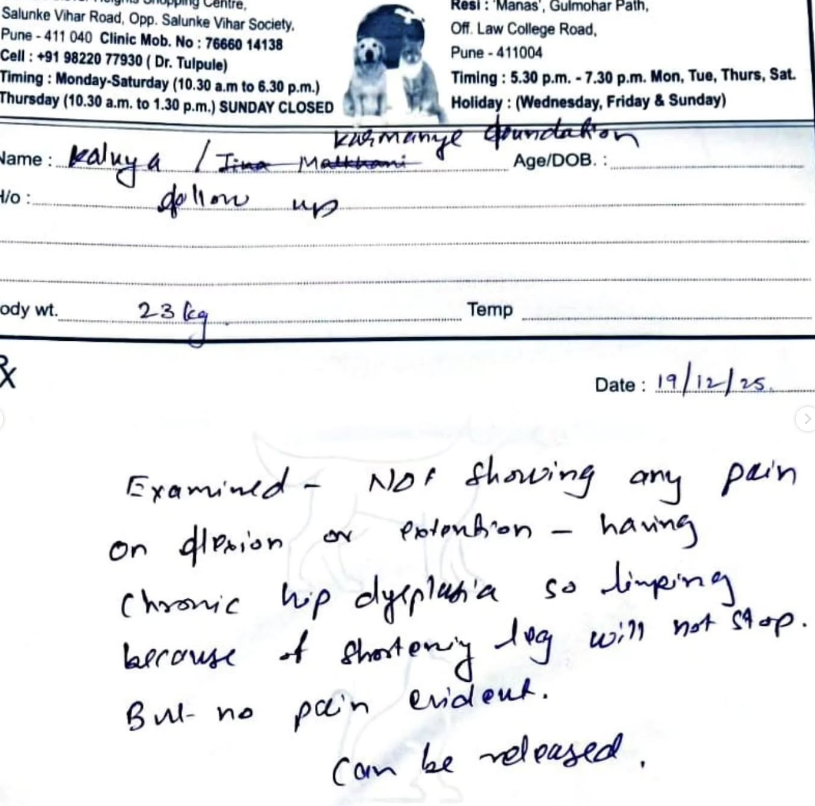 Shopping Centre,
Salunke Vihar Road, Opp. Salunke Vihar Society.
Pune - 411 040 Clinic Mob. No : 76660 14138
Cell : +91 98220 77930 ( Dr. Tulpule)
Timing : Monday-Saturday (10.30 a.m to 6.30 p.m.)
Thursday (10.30 a.m. to 1.30 p.m.) SUNDAY CLOSED
Resi : 'Manas', Gulmohar Path,
Off. Law College Road,
Pune - 411004
Timing : 5.30 p.m. - 7.30 p.m. Mon, Tue, Thurs, Sat.
Holiday : (Wednesday, Friday & Sunday)
Karmanye foundation
Name : Kaluya / Tina Age/DOB. :
H/o : follow up
ody wt. 23 kg Temp
Rx
Date : 19/12/25.
Examined - Not showing any pain
on flexion or extention - having
chronic hip dysplasia so limping
because of shortening leg will not stop.
But no pain evident.
Can be released.